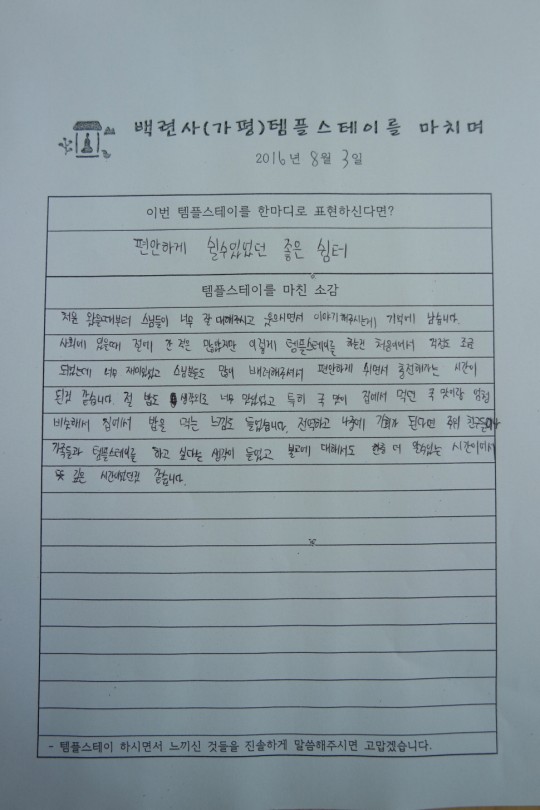 백련사(가평)템플스테이를 마치며
2016년 8월 3일
이번 템플스테이를 한마디로 표현하신다면?
편안하게 쉴수있었던 좋은 쉼터
템플스테이를 마친 소감
처음 왔을때부터 스님들이 너무 잘 대해주시고 웃으시면서 이야기 해주시는게 기억에 남습니다.
사회에 있을때 절에 간 적은 많았지만 이렇게 템플스테이를 하는건 처음이여서 걱정도 조금
되었는데 너무 재미있었고 스님분들도 많이 배려해주셔서 편안하게 쉬면서 충전하는 시간이
된것 같습니다. 절 밥도 생각외로 너무 맛있었고 특히 국 맛이 집에서 먹던 국 맛이랑 엄청
비슷해서 집에서 밥을 먹는 느낌도 들었습니다. 전역하고 나중에 기회가 된다면 주위 친구들이나
가족들과 템플스테이를 하고 싶다는 생각이 들었고 불교에 대해서도 한층 더 알수있는 시간이여서
뜻 깊은 시간이었던것 같습니다.
- 템플스테이 하시면서 느끼신 것들을 진솔하게 말씀해주시면 고맙겠습니다.